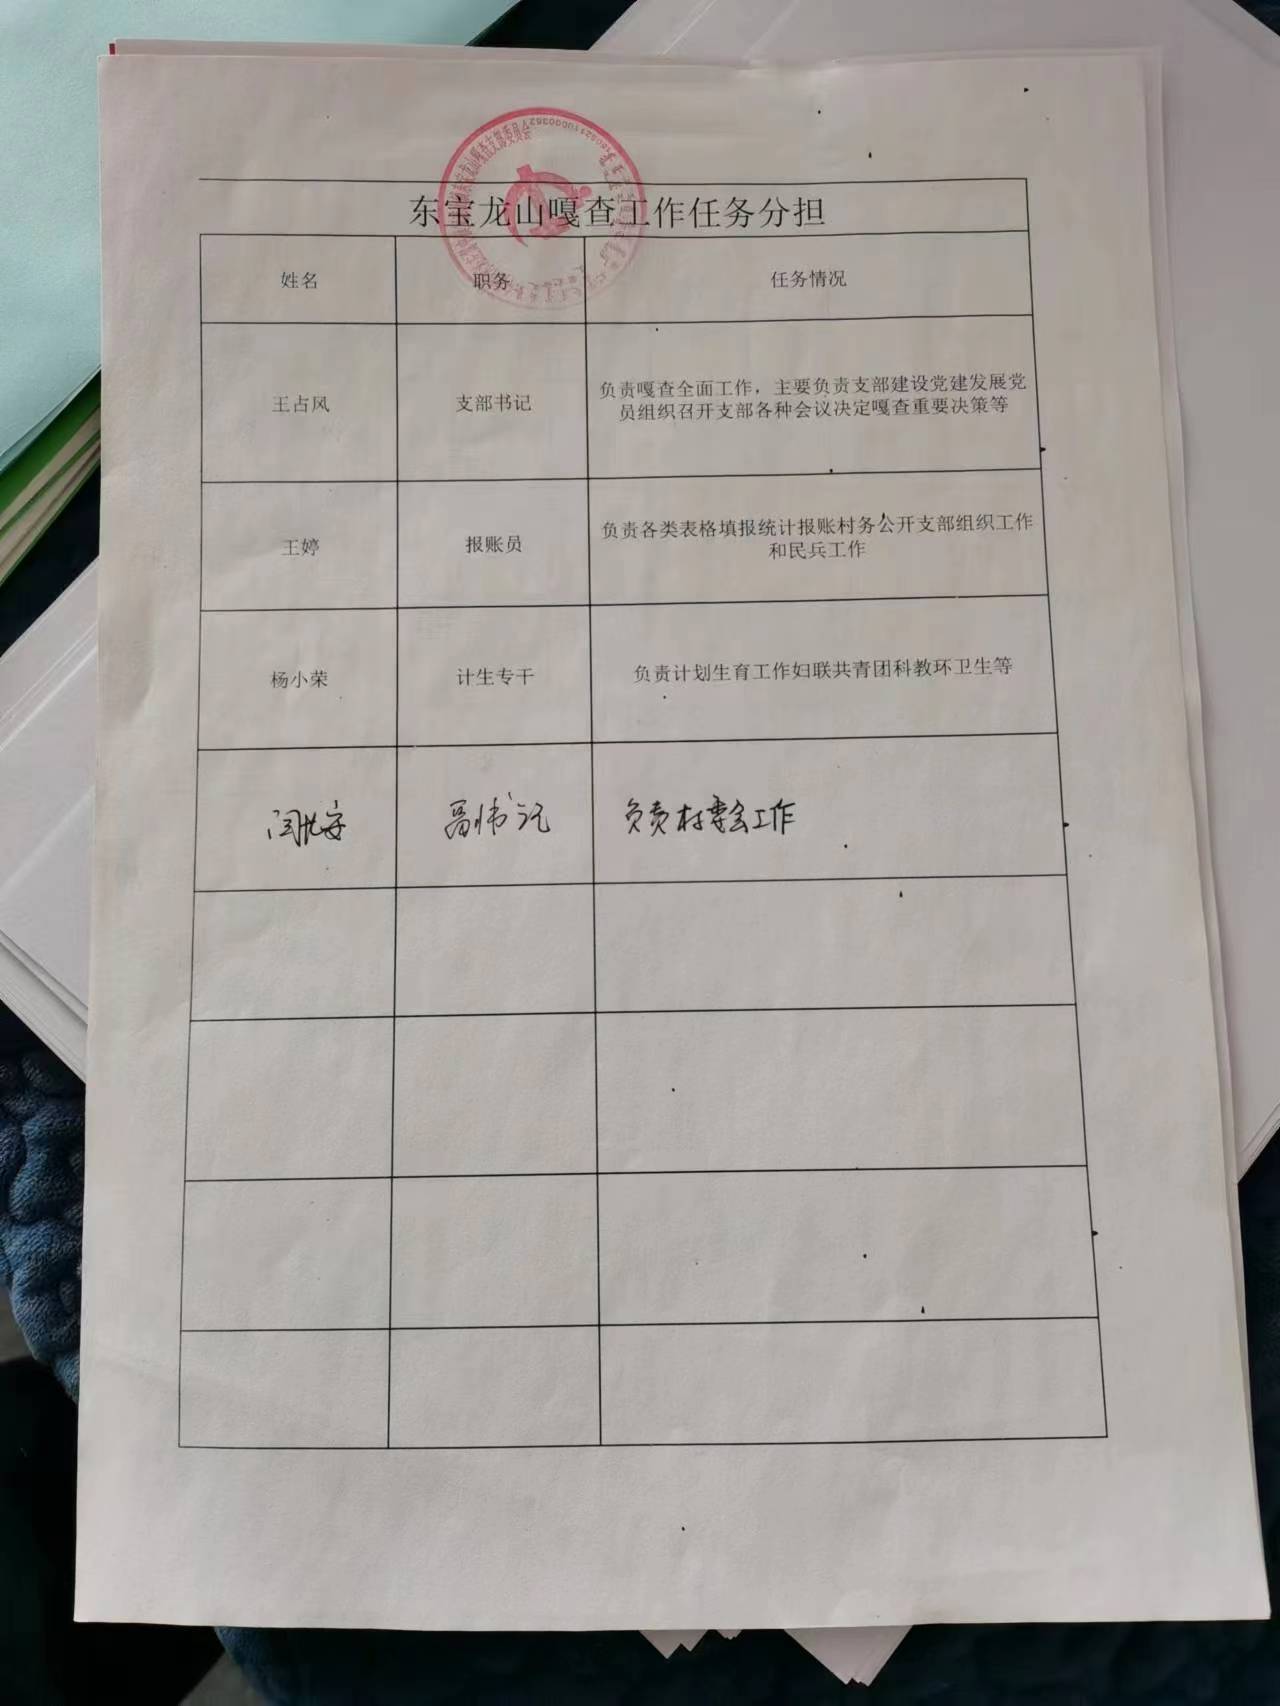 东宝龙山嘎查工作任务分担
姓名 职务 任务情况
王占风 支部书记 负责嘎查全面工作，主要负责支部建设党建发展党
员组织召开支部各种会议决定嘎查重要决策等
王婷 报账员 负责各类表格填报统计报账村务公开支部组织工作
和民兵工作
杨小荣 计生专干 负责计划生育工作妇联共青团科教环卫生等
副书记 负责村委会工作